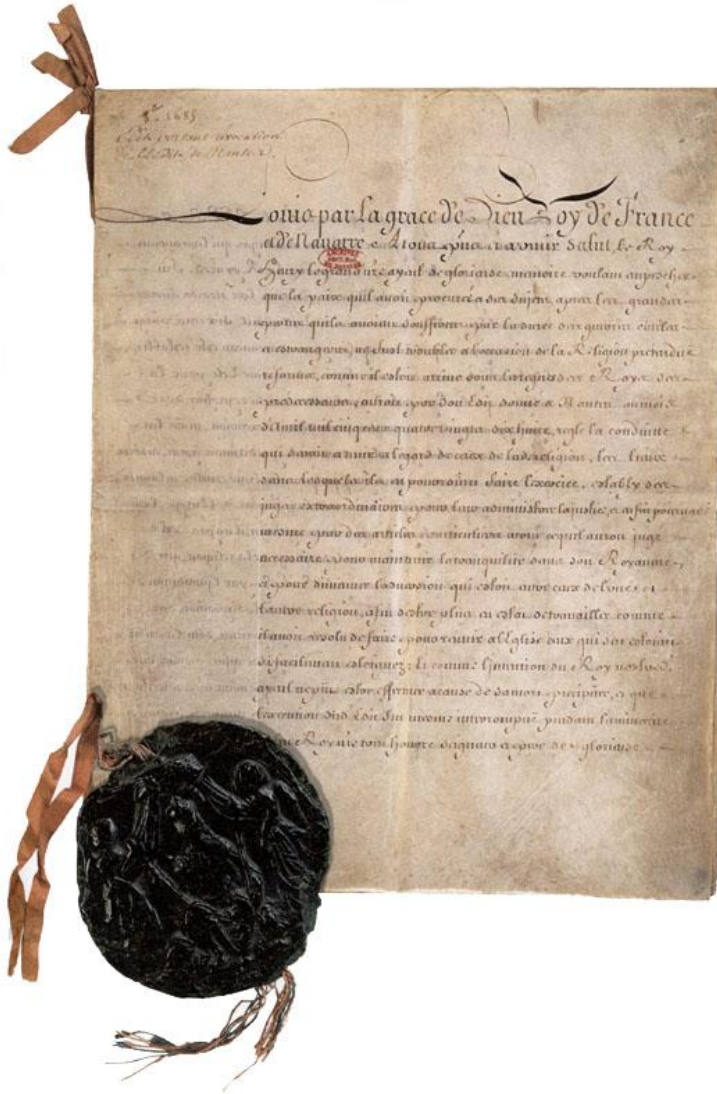 1685
Edit portant revocation
de l'Edit de Nantes.
Louis par la grace de Dieu Roy de France
et de Navarre A tous pnts et a venir Salut, Le Roy
Henry le grand nre ayeul de glorieuse memoire voulant empescher
que la paix quil avoit procurée a ses sujets apres les grandes
pertes quils avoient souffertes par la durée des guerres civiles
et estrangeres, ne fust troublée a loccasion de la Religion pretendue
reformée, comme il estoit arrivé sous les regnes des Roys ses
predecesseurs, auroit par son Edit donné a Nantes au mois
davril mil cinq cens quatre vingts dix huict, reglé la conduitte
qui seroit a tenir a legard de ceux de lad. religion, les lieux
dans lesquels ils en pourroient faire lexercice, estably des
juges extraordinaires pour leur administrer la justice, et enfin pourveu
mesme par des articles particuliers a tout ce quil auroit jugé
necessaire pour maintenir la tranquilité dans son Royaume,
et pour diminuer laversion qui estoit entre ceux de lune et
lautre religion, afin destre plus en estat de travailler comme
il avoit resolu de faire pour reunir a lEglise ceux qui sen estoient
si facilement esloignez; Et comme lintention du Roy nostred.
ayeul ne put estre effectuée a cause de sa mort precipitée, et que
lexecution dud. Edit fut mesme interrompue pendant la minorité
Roy nre tres honoré seigneur et pere de glorieuse